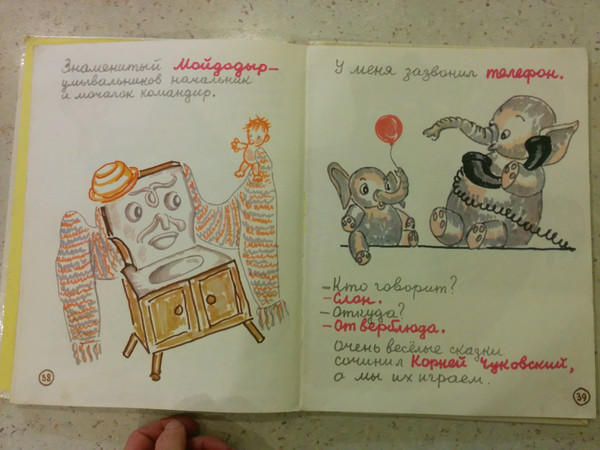 Знаменитый Мойдодыр—
умывальников начальник
и мочалок командир.
38
У меня зазвонил телефон.
—Кто говорит?
—Слон.
—Откуда?
—От верблюда.
Очень весёлые сказки
сочинил Корней Чуковский,
а мы их играем.
39